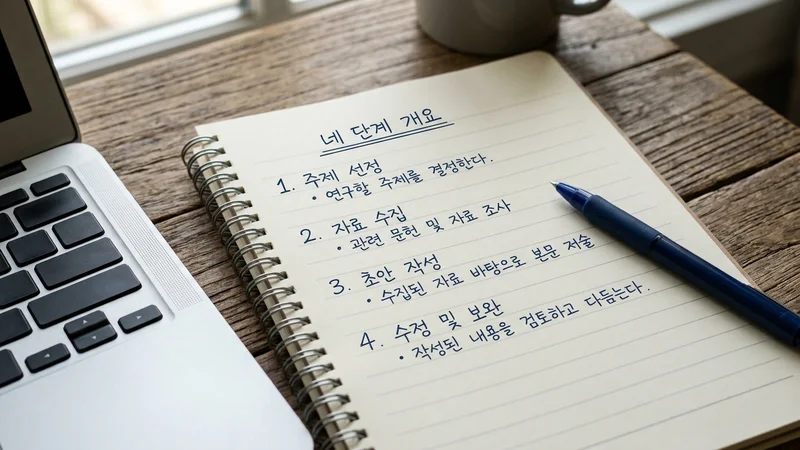 네 단계 개요
1. 주제 선정
• 연구할 주제를 결정한다.
2. 자료 수집
• 관련 문헌 및 자료 조사
3. 초안 작성
• 수집된 자료 바탕으로 본문 저술
4. 수정 및 보완
• 작성된 내용을 검토하고 다듬는다.